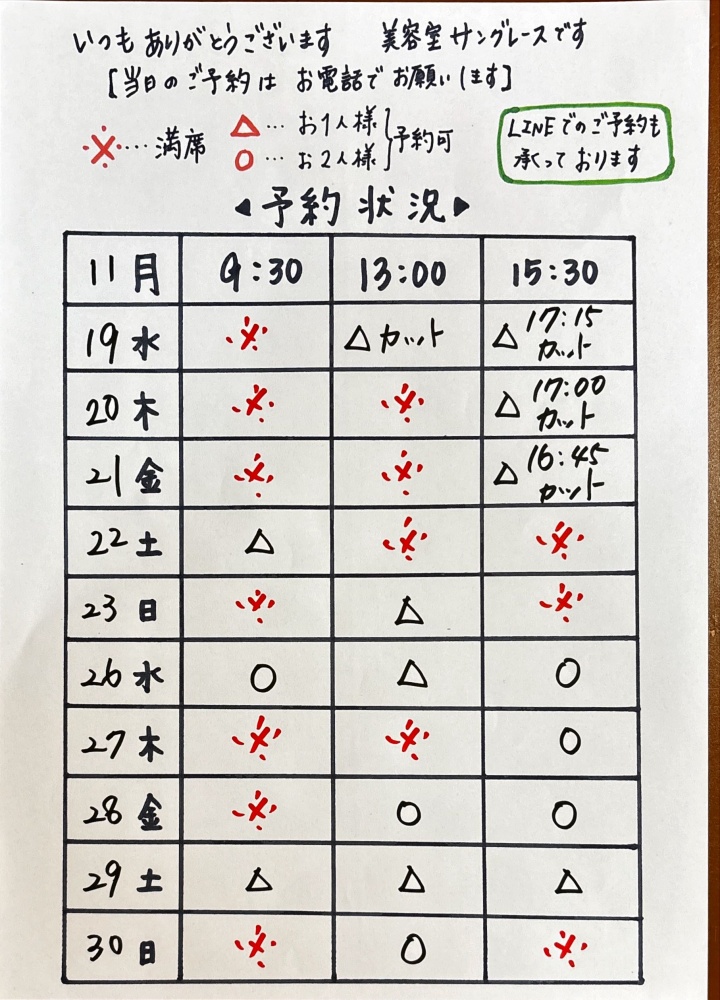 いつもありがとうございます 美容室サングレースです
[当日のご予約は お電話でお願いします]
※…満席
△…お1人様
○…お2人様
予約可
LINEでのご予約も
承っております
◀予約状況▶
11月 9:30 13:00 15:30
19 水 ※ △カット △17:15カット
20 木 ※ ※ △17:00カット
21 金 ※ ※ △16:45カット
22 土 △ ※ ※
23 日 ※ △ ※
26 水 ○ △ ○
27 木 ※ ※ ○
28 金 ※ ○ ○
29 土 △ △ △
30 日 ※ ○ ※